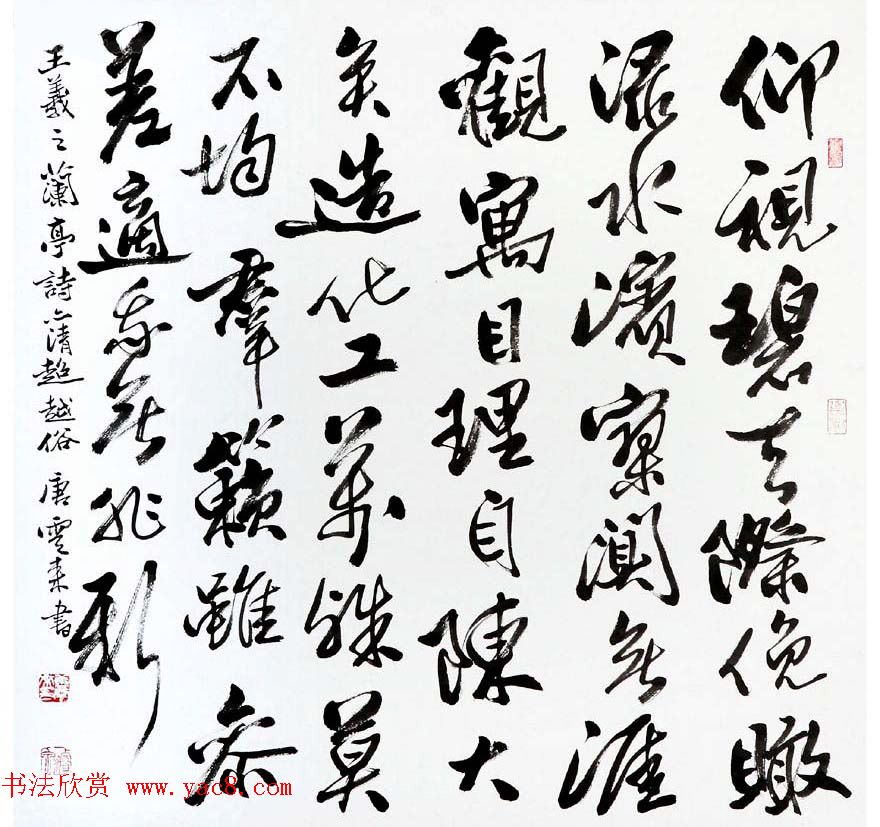 仰視碧天際俛瞰
渌水濱寥闃無涯
觀寓目理自陳大
矣造化工萬殊莫
不均羣籟雖參
差適我無非新
王羲之蘭亭詩清超越俗唐雲来書
书法欣赏 www.yac8.com